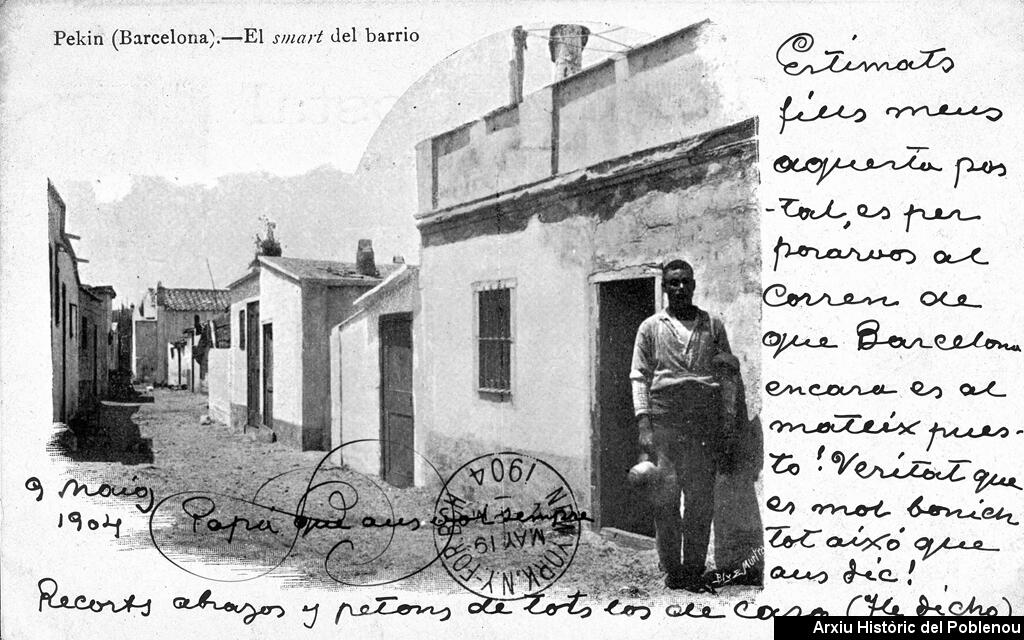 Pekin (Barcelona).—El smart del barrio
Estimats
fills meus
aquesta pos
-tal, es per
porárvos al
corren de
que Barcelona
encara es al
mateix pues-
to! Veritat que
es mol bonich
tot aixó que
aus dic!
9 Maig
1904
Papa que aus vol sempre
NEW YORK. N.Y. FOR
MAY 19
1904
Recorts abrazos y petons de tots los de casa (He dicho)
Arxiu Històric del Poblenou